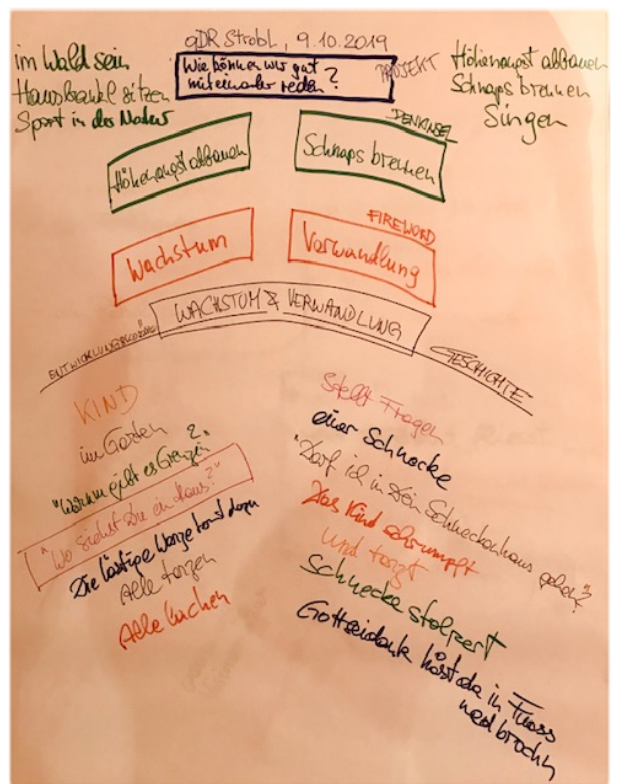 gDR Strobl, 9.10.2019
Wie können wir gut
miteinander reden?
PROJEKT
im Wald sein
Hausbankel sitzen
Sport in der Natur
Höhenangst abbauen
Schnaps brennen
Singen
DENKINSEL
Höhenangst abbauen
Schnaps brennen
FIREWORD
Wachstum
Verwandlung
WACHSTUM & VERWANDLUNG
GESCHICHTE
KIND
im Garten
"Warum gibt es Grenzen?"
"Wo siehst Du ein Haus?"
Die lästige Wanze kommt dazu
Alle tanzen
Alle lachen
Stellt Fragen
einer Schnecke
"Darf ich in Dein Schneckenhaus gehen?"
Das Kind schrumpft
und tanzt
Schnecke stolpert
Gottseidank håst da in Fuass
ned brochn